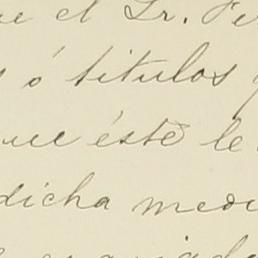 ue el Sr. Fe
s ó titulos y
que éste le
dicha medi